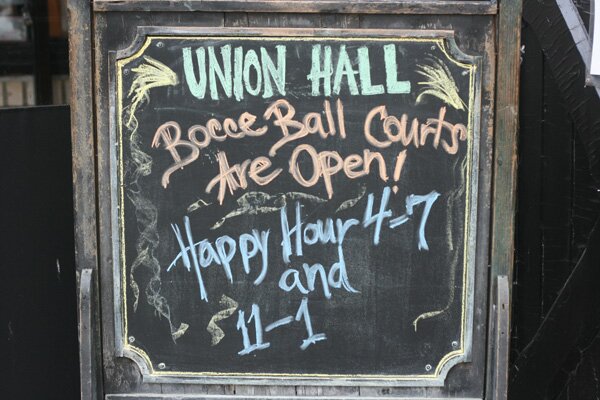 UNION HALL
Bocce Ball Courts
Are Open!
Happy Hour 4-7
and
11-1